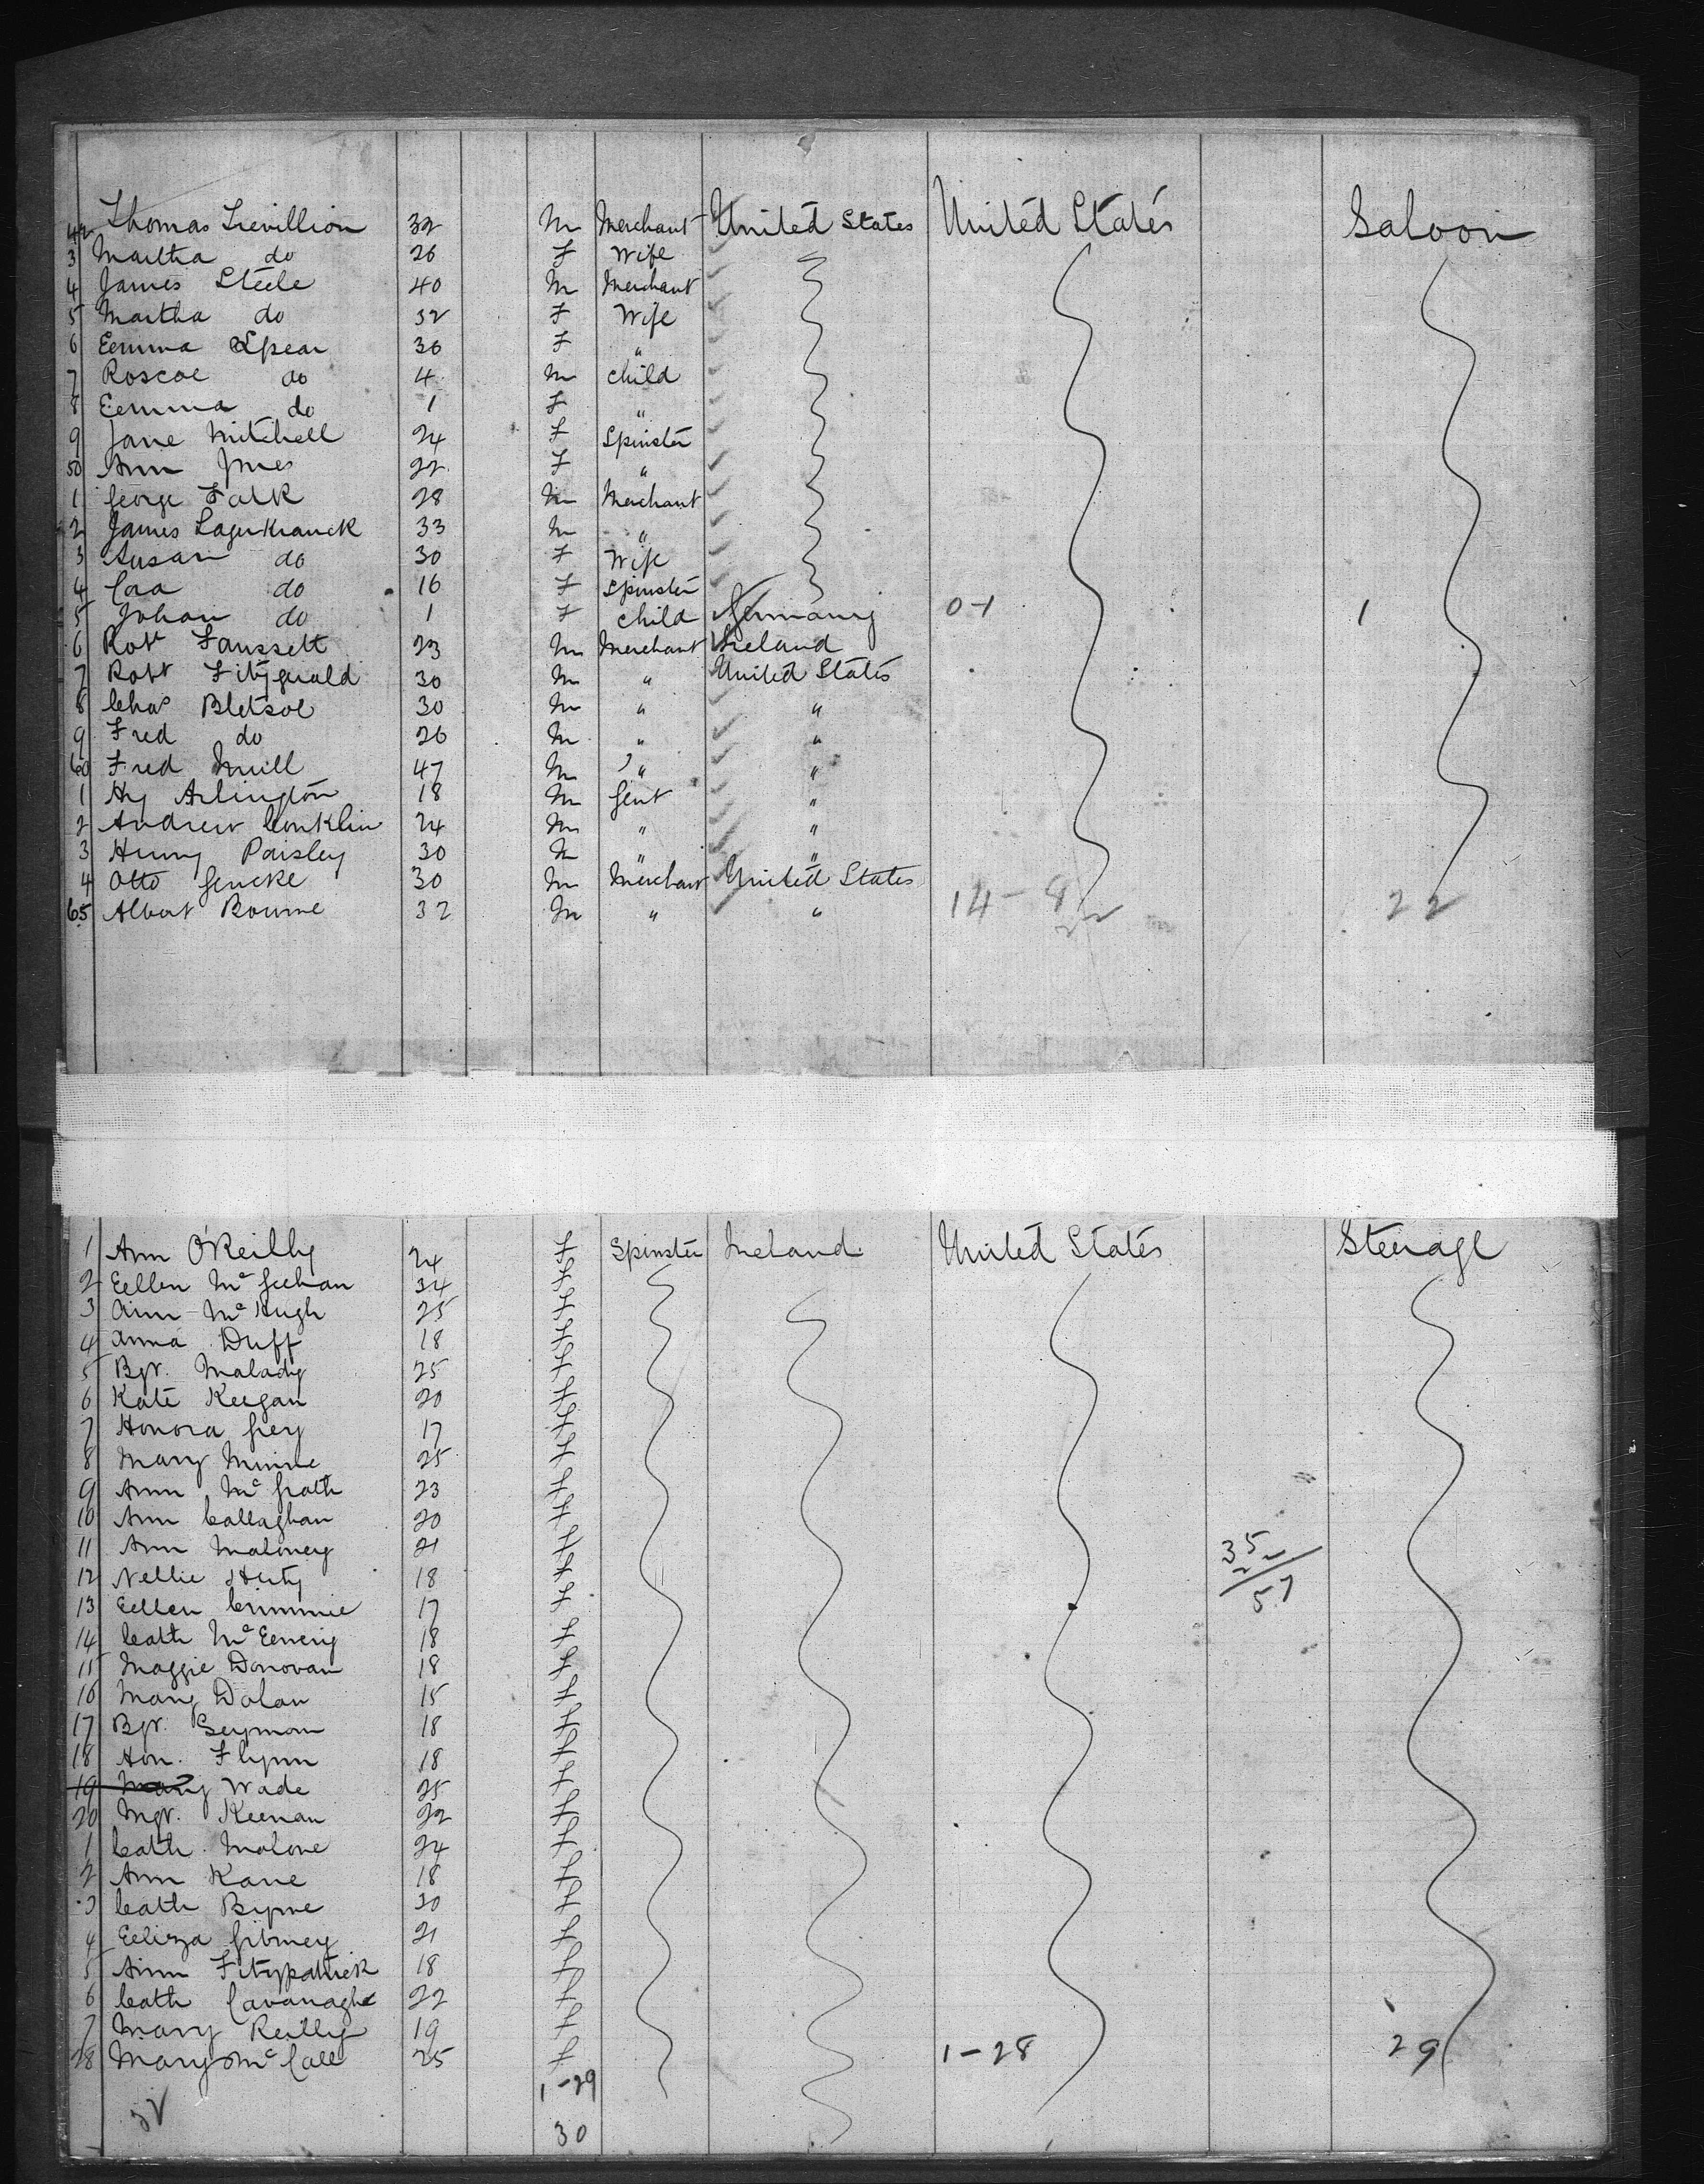 42 Thomas Trevillion 32 M Merchant United States United States Saloon
3 Martha do 26 F Wife
4 James Steele 40 M Merchant
5 Martha do 32 F Wife
6 Eemma Spear 36 F "
7 Roscoe do 4 M Child
8 Eemma do 1 F "
9 Jane Mitchell 24 F Spinster
50 Ann Jones 22 F "
1 George Falk 28 M Merchant
2 James Lagerkranck 33 M "
3 Susan do 30 F Wife
4 Cora do 16 F Spinster
5 Johan do 1 F Child Germany 0-1 1
6 Robt Faussett 23 M Merchant Ireland
7 Robt Fitzgerald 30 M " United States
8 Chas Bletsoe 30 M " "
9 Fred do 26 M " "
60 Fred Mull 47 M " "
1 Hy Arlington 18 M Gent "
2 Andrew Conklin 24 M " "
3 Henry Paisley 30 M " "
4 Otto Gencke 30 M Merchant United States
65 Albert Bourne 32 M " " 14-8 22 22
1 Ann O'Reilly 24 F Spinster Ireland United States Steerage
2 Eellen Mc Geehan 34 F
3 Ann Mc Hugh 25 F
4 Anna Duff 18 F
5 Bgt. Malady 25 F
6 Kate Keegan 20 F
7 Honora Grey 17 F
8 Mary Minne 25 F
9 Ann Mc Grath 23 F
10 Ann Callaghan 20 F
11 Ann Maloney 21 F
35
12 Nellie 18 F
22
57
13 Eellen Crimmie 17 F
14 Cath Mc Eenery 18 F
15 Maggie Donovan 18 F
16 Mary Dolan 15 F
17 Bgt. Seymour 18 F
18 Hon. Flynn 18 F
19 Mary Wade 25 F
20 Mgt. Keenan 22 F
1 Cath. Malone 24 F
2 Ann Kane 18 F
3 Cath Byrne 30 F
4 Eeliza Gibney 21 F
5 Ann Fitzpatrick 18 F
6 Cath Cavanagh 22 F
7 Mary Reilly 19 F
28 Mary Mc Call 25 F 1-28 29
1-29
30